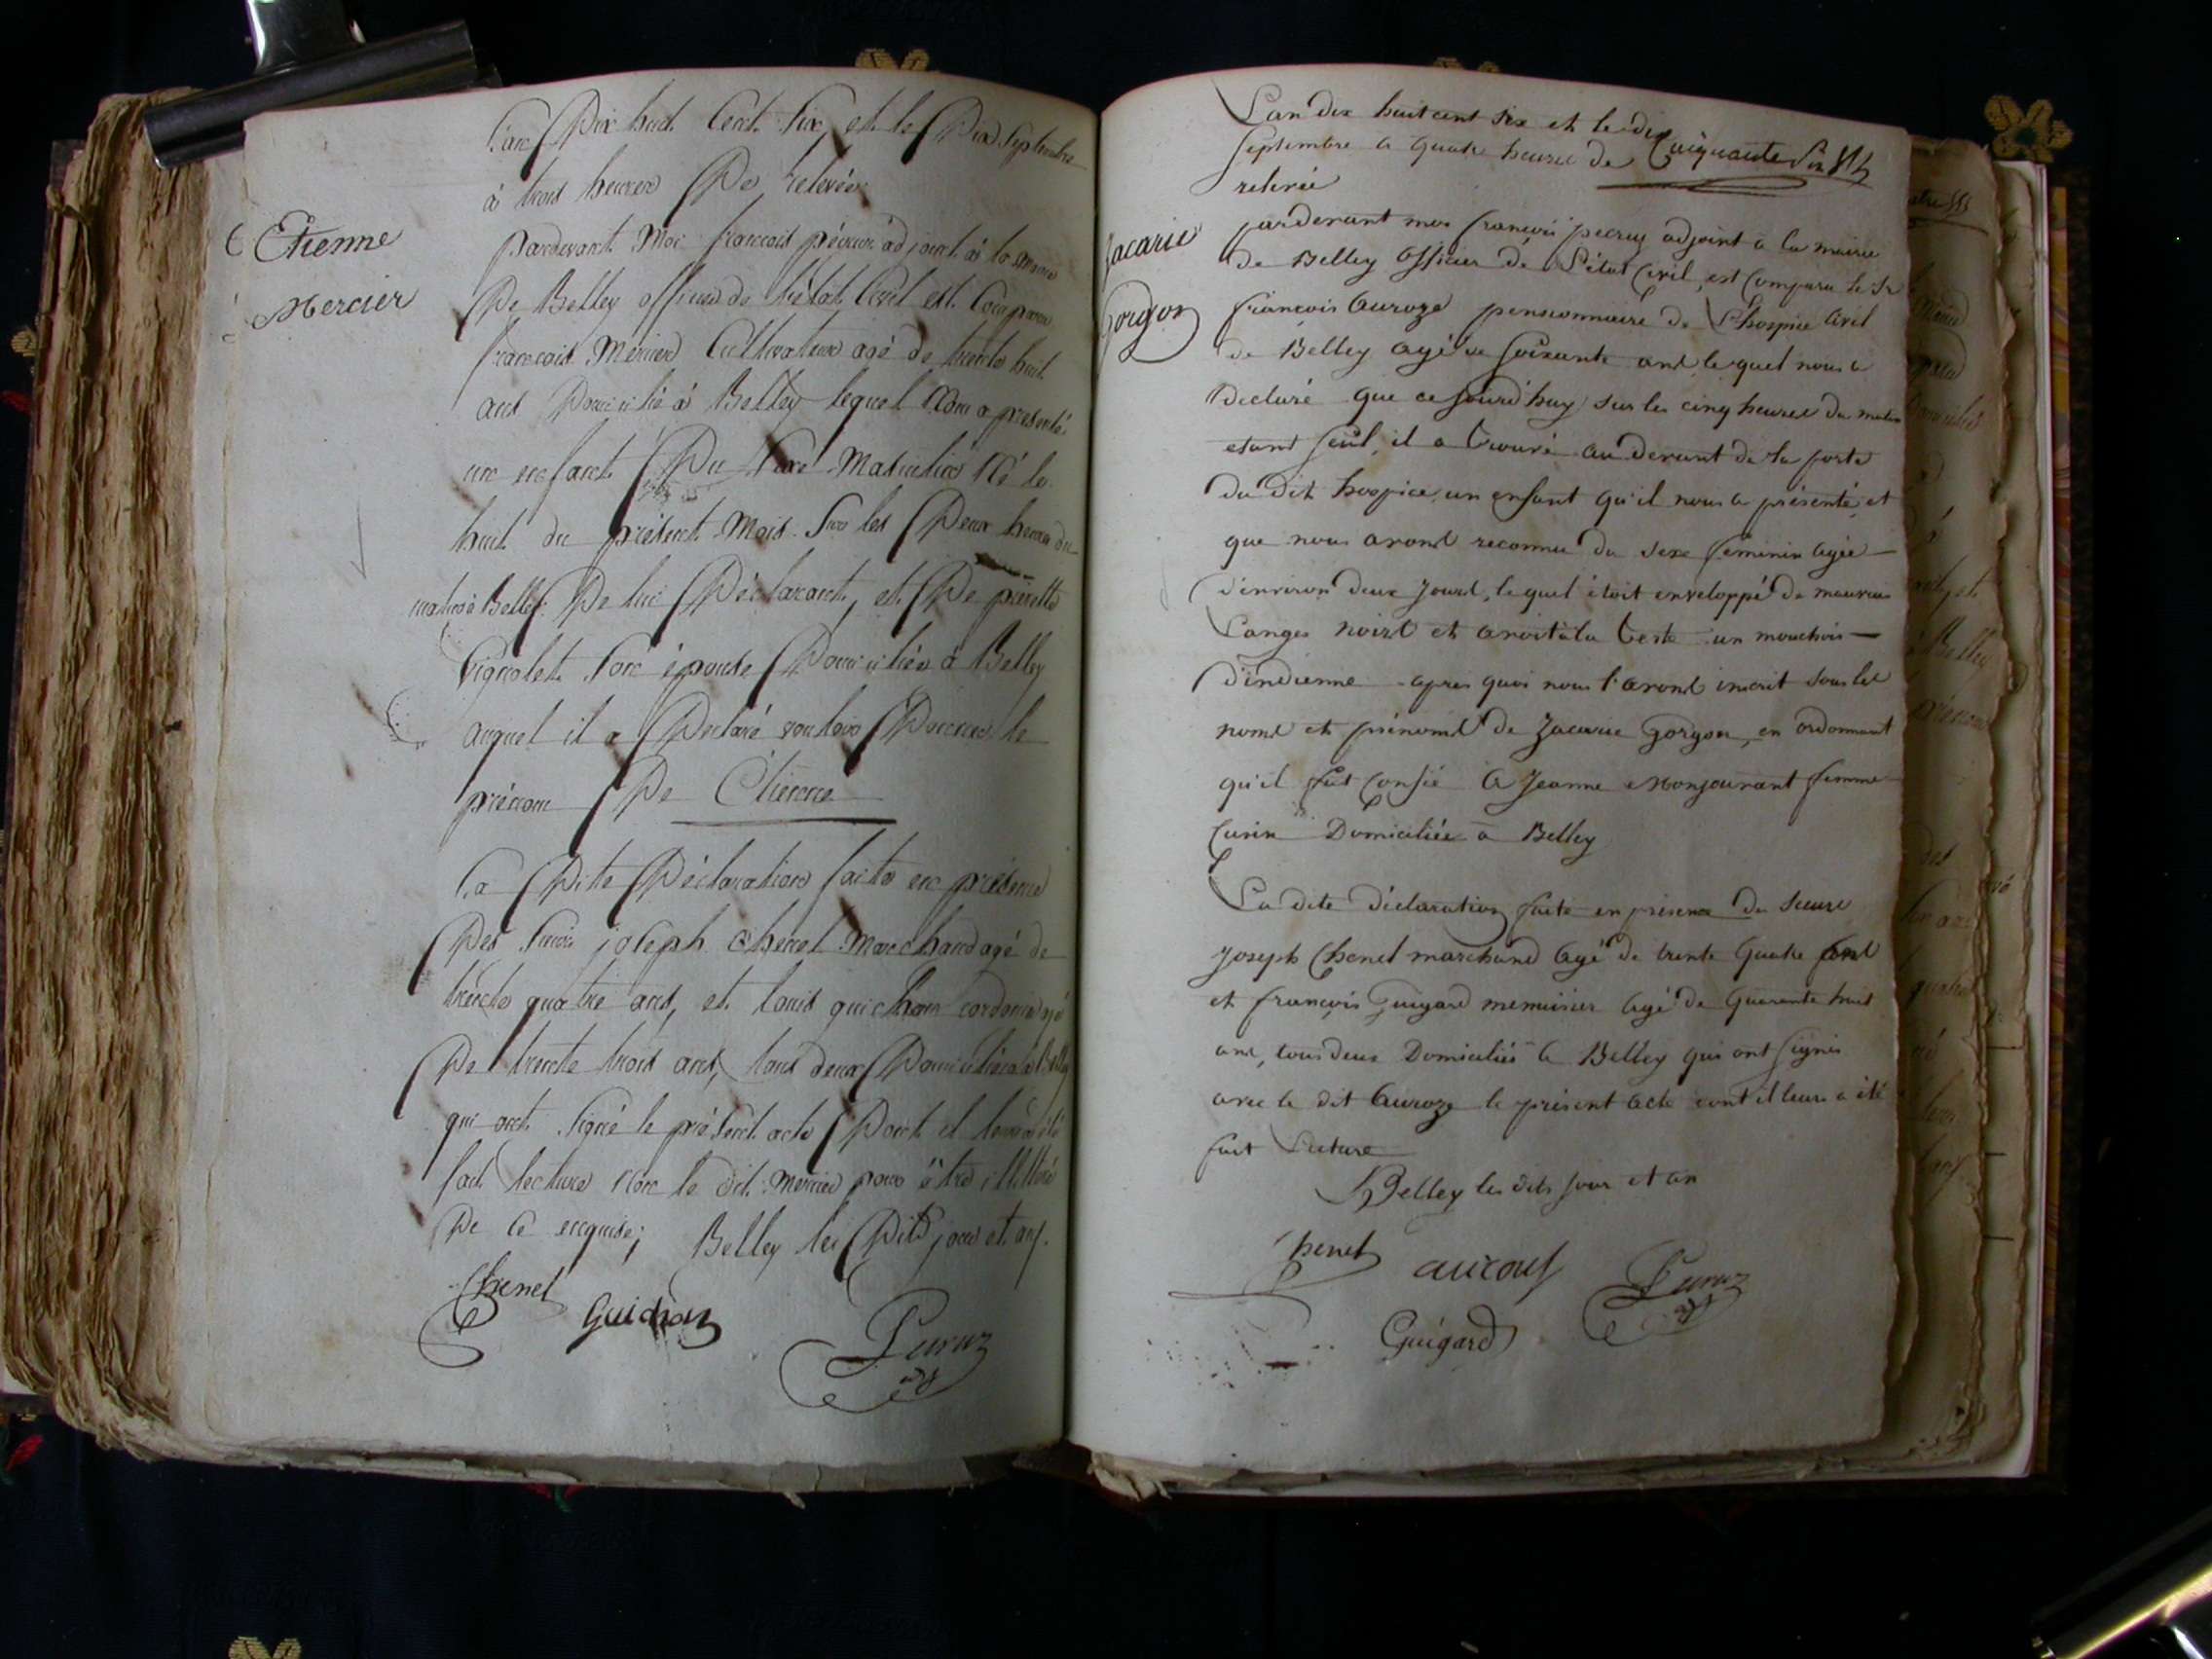 Etienne
Mercier
L'an Dix huit Cent Six et le Dix Septembre
à trois heures De relevée
Pardevant Moi francois péruz adjoint à la mairie
De Belley officier de l'état Civil est Comparu
francois Mercier Cultivateur agé de trente huit
ans Domicilié à Belley lequel Nous a présenté
un enfant Du Sexe Masculin Né le
huit du présent Mois Sur les Deux heures du
matin à Belley De lui Déclarant, et De pierrette
Vignolet Son épouse Domiciliés à Belley
auquel il a Déclaré vouloir Donner le
prénom De Etienne
La Dite Déclaration faite en présence
Des Sieurs joseph Chenel Marchand agé de
trente quatre ans, et louis guichon cordonnier agé
De trente trois ans, tous deux Domiciliés à Belley
qui ont Signé le présent acte Dont il leur a été
fait lecture Non le dit Mercier pour être illitéré
De Ce enquis; Belley les Dits jour et an.
Chenel
Guichon
Peruz
Cinquante Six
Zacarie
Gorgon
L'an dix huit cent six et le dix
Septembre a quatre heures de
relevée
pardevant moi francois peruz adjoint à la mairie
de Belley officier de l'état Civil, est comparu le Sr
francois Auroze pensionnaire de l'hospice Civil
de Belley agé de soixante ans lequel nous a
Declaré que ce jourd'huy sur les cinq heures du matin
etant seul, il a trouvé au devant de la porte
du dit hospice un enfant qu'il nous a présenté, et
que nous avons reconnu du sexe feminin agée
d'environ deux jours, lequel étoit enveloppé de mauvais
Langes noirs et avoit à la teste un mouchoir
d'indienne apres quoi nous l'avons inscrit sous les
noms et prénoms de Zacarie Gorgon, en ordonnant
qu'il fut confié à Jeanne Monjouvant femme
Domiciliée à Belley
La dite déclaration faite en présence des sieurs
Joseph Chenel marchand agé de trente quatre ans
et francois Guigard menuisier agé de quarante huit
ans, tous deux Domiciliés à Belley qui ont signés
avec le dit Auroze le présent acte dont il leur a été
fait lecture
Belley les dits jour et an
Chenel
Peruz
Guigard